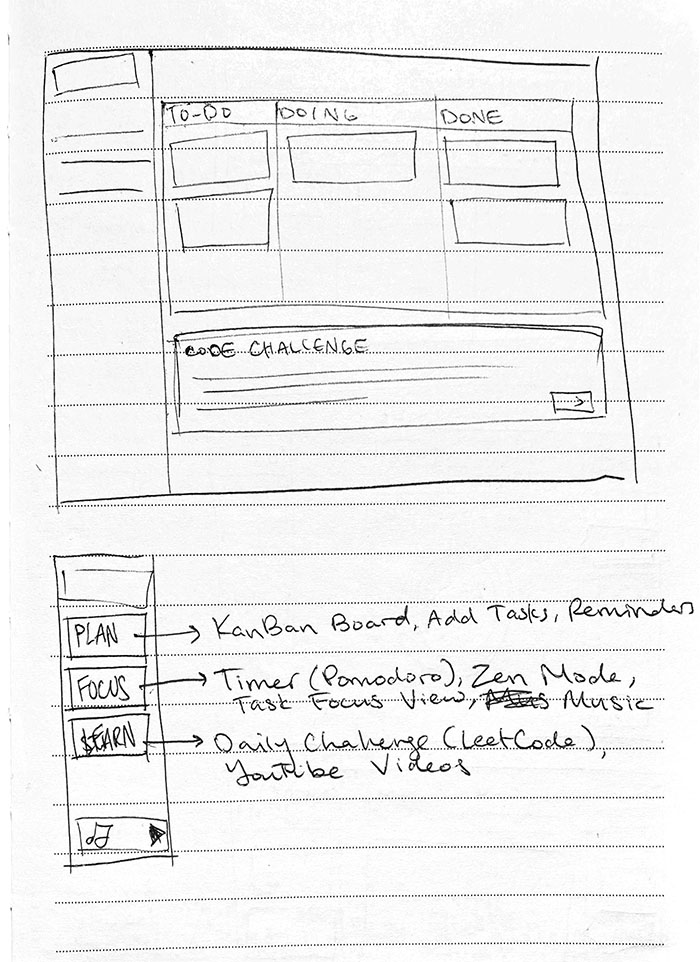 TO-DO
DOING
DONE
CODE CHALLENGE
PLAN
KanBan Board, Add Tasks, Reminders
FOCUS
Timer (Pomodoro), Zen Mode,
Task Focus View, Music
LEARN
Daily Challenge (LeetCode),
YouTube Videos